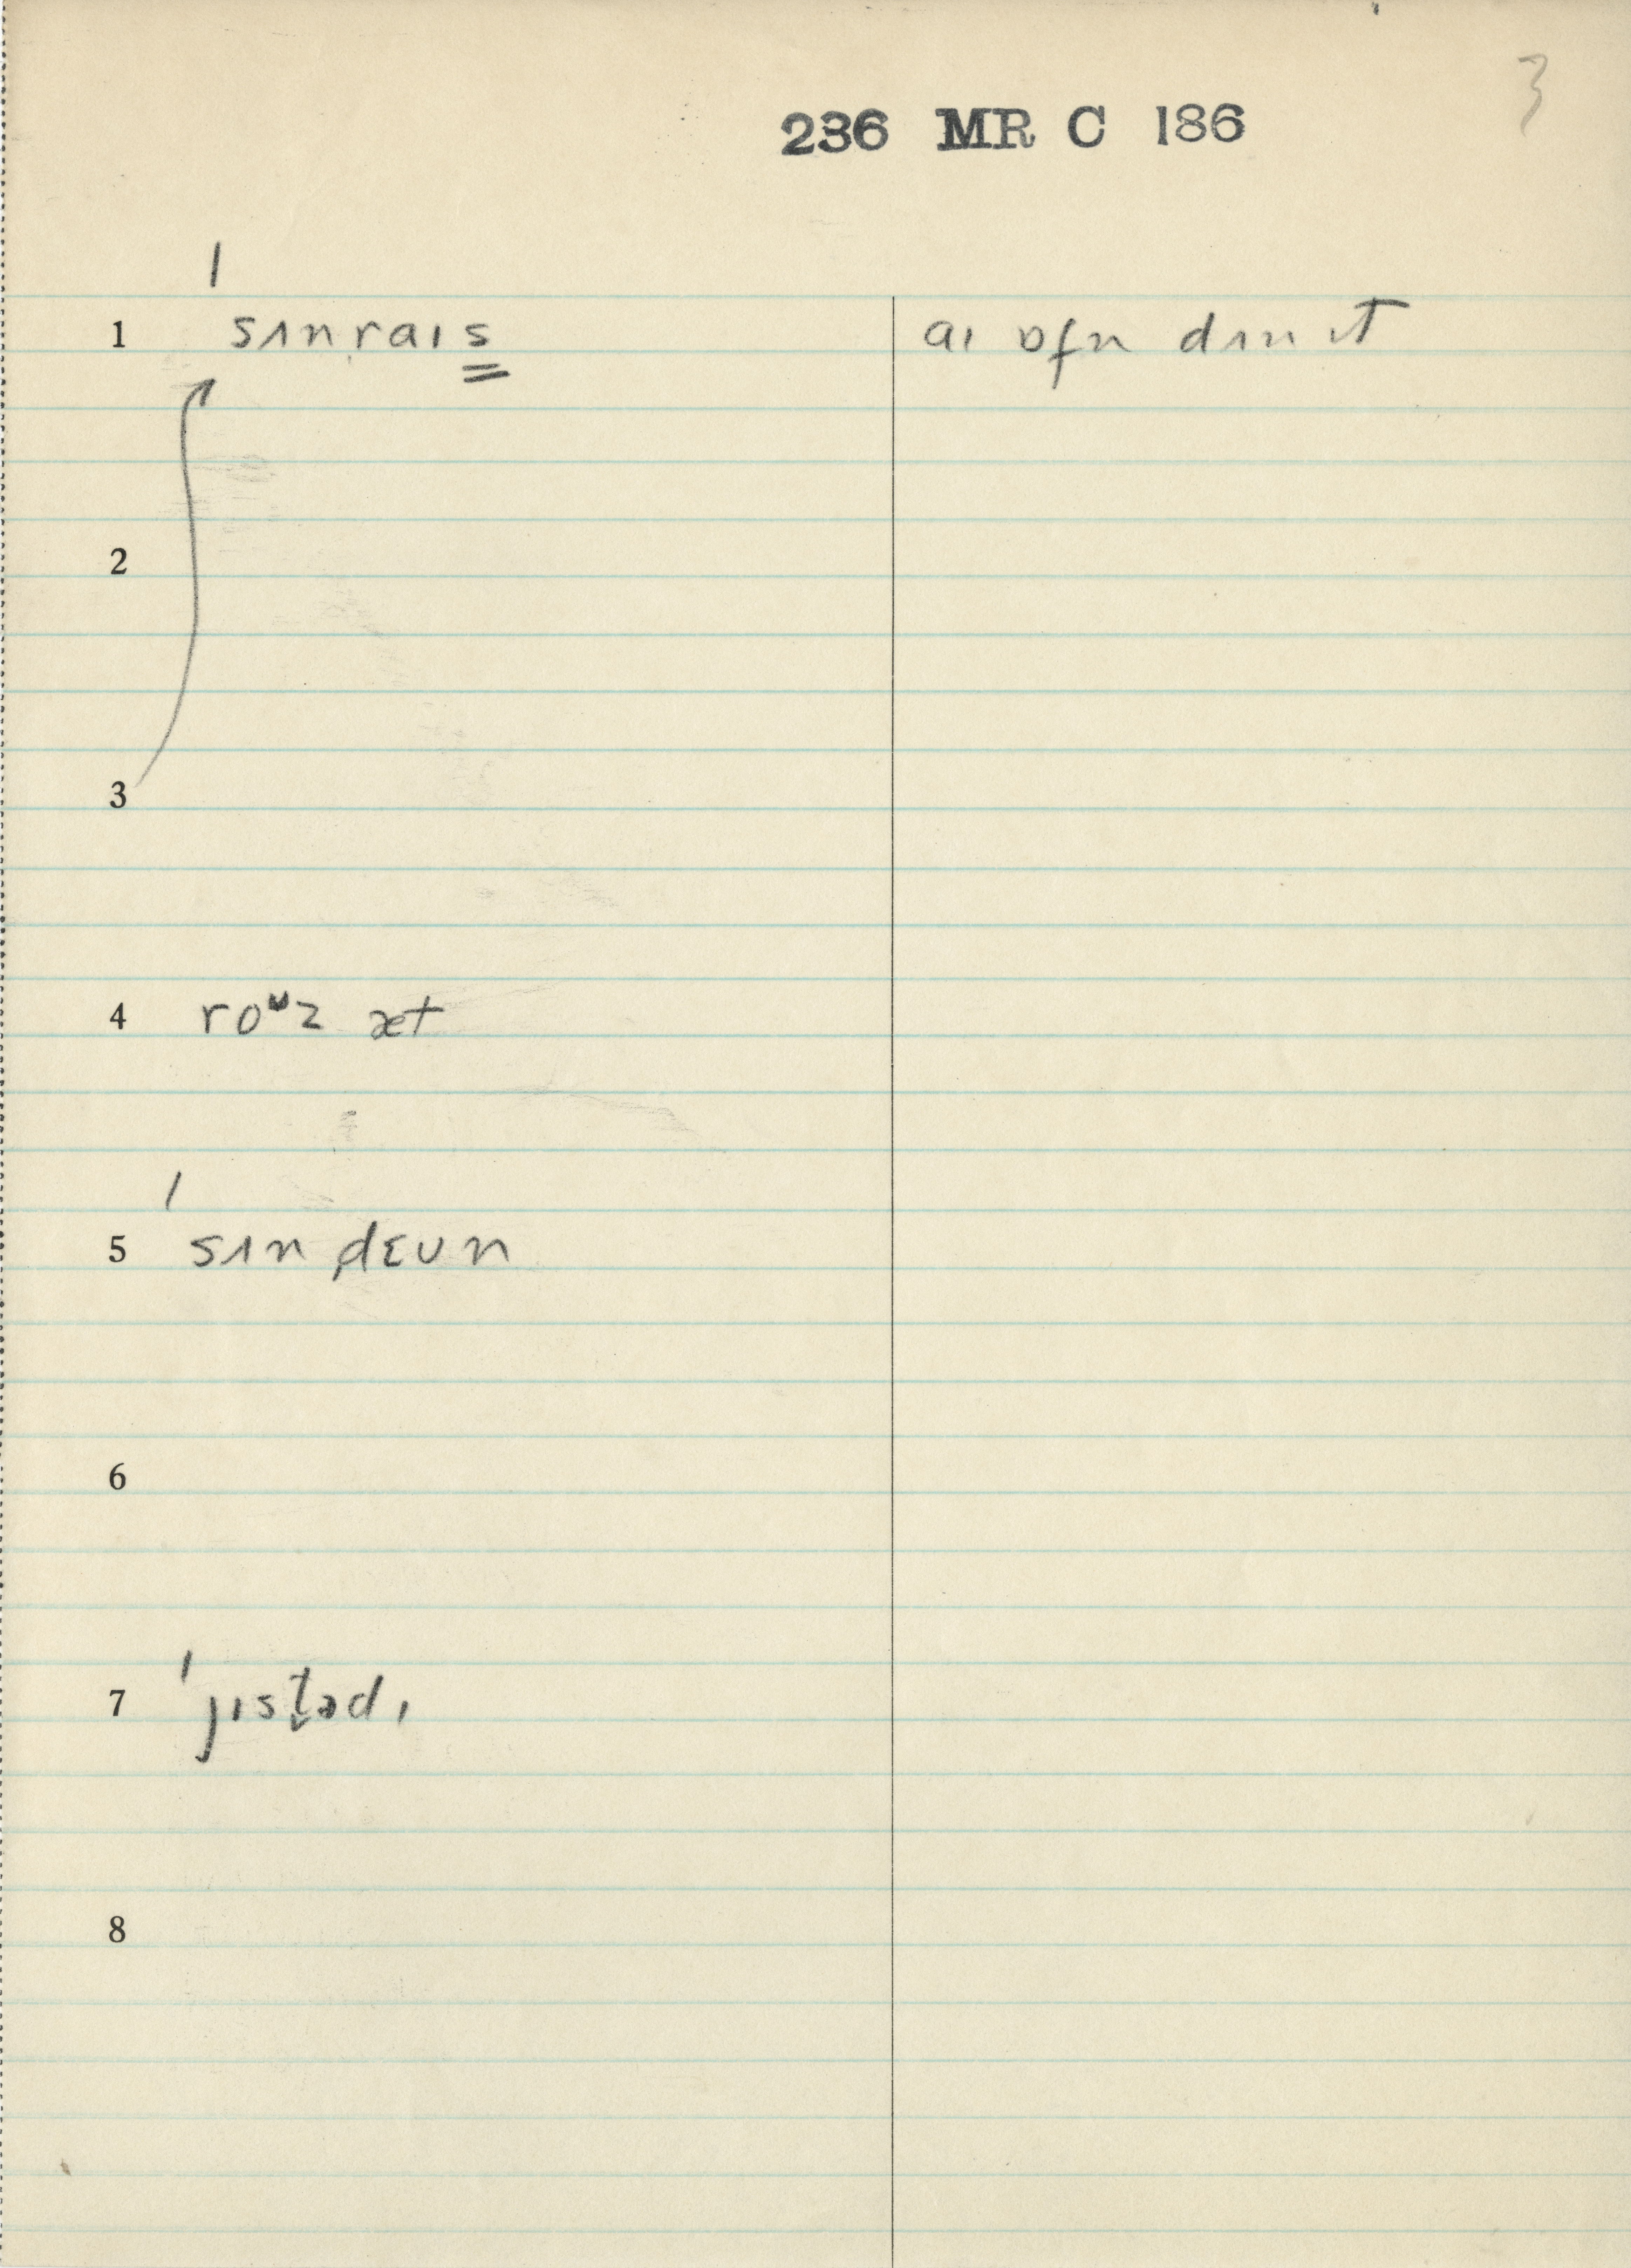 3
236 MR C 186
1 ˈsʌnˌraɪs̳ aɪ ɒfn dʌn ɪt
2
3
4 roᶷz æt
5 ˈsʌnˌdɛʊn
6
7 ˈjɪstədɪ
8